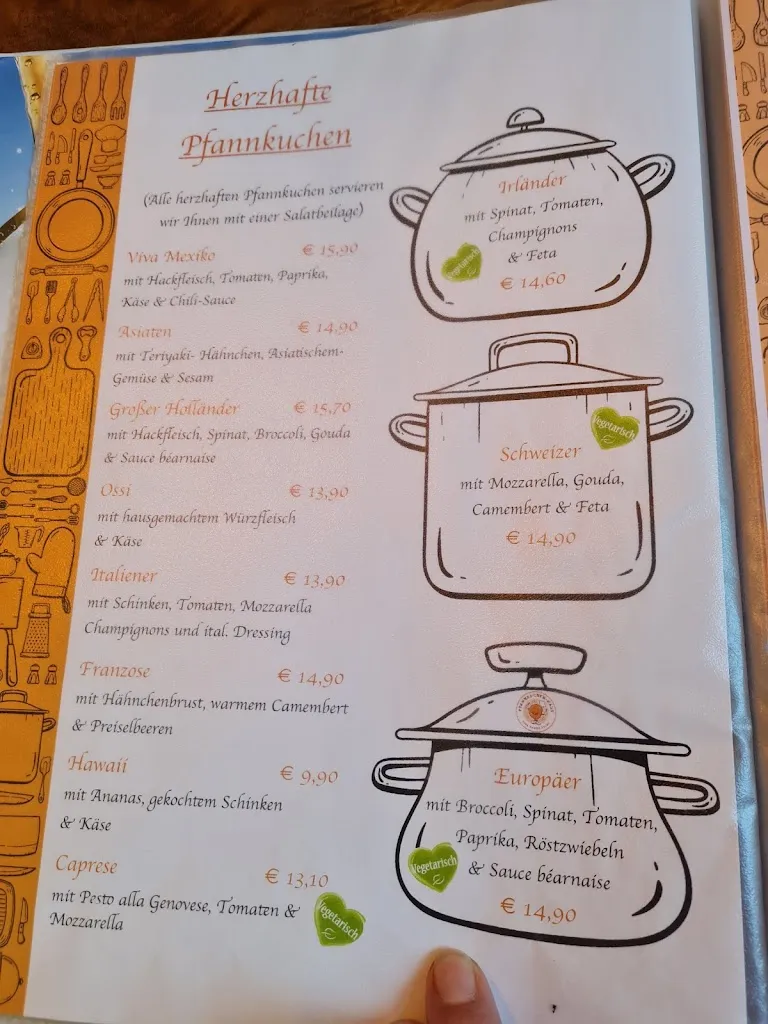 Herzhafte
Pfannkuchen
(Alle herzhaften Pfannkuchen servieren
wir Ihnen mit einer Salatbeilage)
Viva Mexiko € 15,90
mit Hackfleisch, Tomaten, Paprika,
Käse & Chili-Sauce
Asiaten € 14,90
mit Teriyaki- Hähnchen, Asiatischem-
Gemüse & Sesam
Großer Holländer € 15,70
mit Hackfleisch, Spinat, Broccoli, Gouda
& Sauce béarnaise
Ossi € 13,90
mit hausgemachtem Würzfleisch
& Käse
Italiener € 13,90
mit Schinken, Tomaten, Mozzarella
Champignons und ital. Dressing
Franzose € 14,90
mit Hähnchenbrust, warmem Camembert
& Preiselbeeren
Hawaii € 9,90
mit Ananas, gekochtem Schinken
& Käse
Caprese € 13,10
mit Pesto alla Genovese, Tomaten &
Mozzarella
Vegetarisch
Irländer
mit Spinat, Tomaten,
Champignons
& Feta
Vegetarisch
€ 14,60
Vegetarisch
Schweizer
mit Mozzarella, Gouda,
Camembert & Feta
€ 14,90
Europäer
mit Broccoli, Spinat, Tomaten,
Paprika, Röstzwiebeln
Vegetarisch
& Sauce béarnaise
€ 14,90